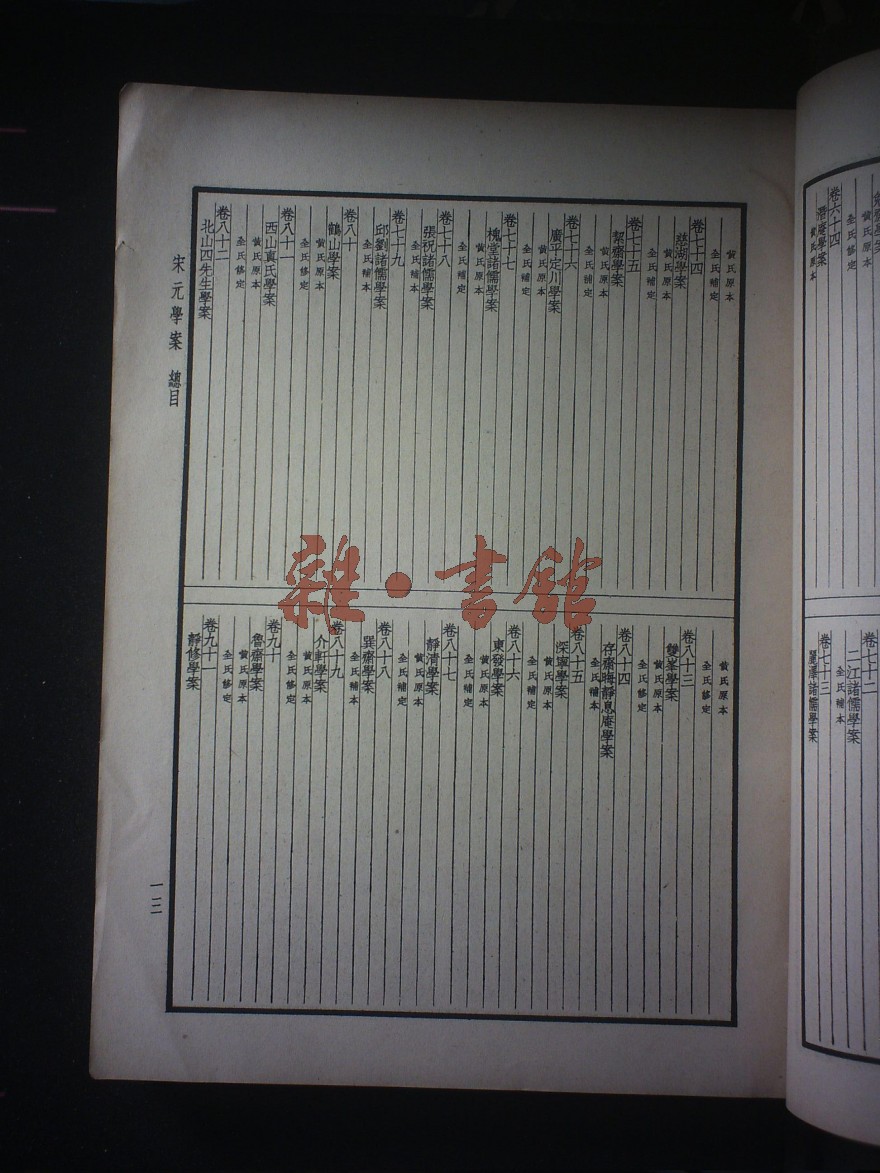 黃氏原本
全氏補定
卷七十四
慈湖學案
黃氏原本
全氏補定
卷七十五
絜齋學案
黃氏原本
全氏補定
卷七十六
廣平定川學案
黃氏原本
全氏補定
卷七十七
槐堂諸儒學案
黃氏原本
全氏補定
卷七十八
張祝諸儒學案
全氏補本
卷七十九
邱劉諸儒學案
全氏補本
卷八十
鶴山學案
黃氏原本
全氏修定
卷八十一
西山真氏學案
黃氏原本
全氏修定
卷八十二
北山四先生學案
黃氏原本
全氏修定
卷八十三
雙峯學案
黃氏原本
全氏修定
卷八十四
存齋晦靜息庵學案
全氏補本
卷八十五
深寧學案
黃氏原本
全氏補定
卷八十六
東發學案
黃氏原本
全氏補定
卷八十七
靜清學案
全氏補定
卷八十八
巽齋學案
全氏補定
卷八十九
介軒學案
黃氏原本
全氏修定
卷九十
魯齋學案
黃氏原本
全氏修定
卷九十一
靜修學案
宋元學案 總目
一三
雜·書館
全氏修定
黃氏原本
卷六十四
潛庵學案
黃氏原本
卷七十二
二江諸儒學案
全氏補本
卷七十三
麗澤諸儒學案